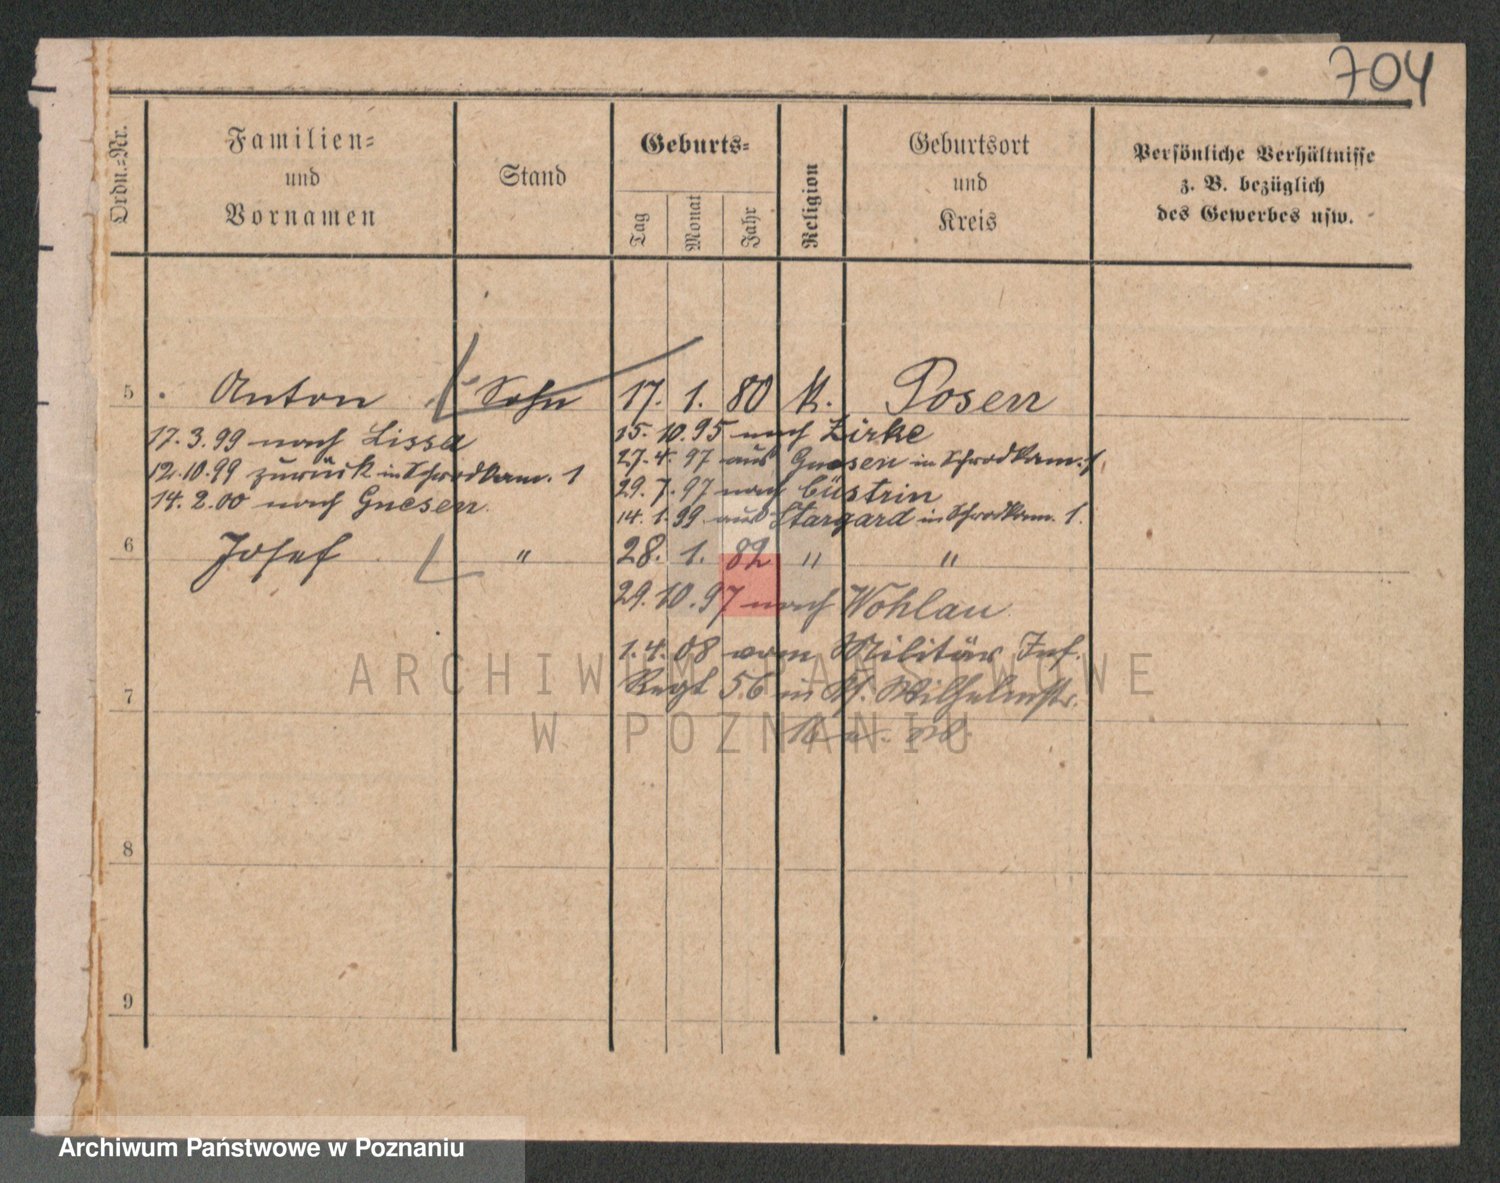 704
Ordn.=Nr.
Familien=
und
Vornamen
Stand
Geburts=
Tag
Monat
Jahr
Religion
Geburtsort
und
Kreis
Persönliche Verhältnisse
z. B. bezüglich
des Gewerbes usw.
5 Anton Sohn 17. 1. 80 K. Posen
17. 3. 99 nach Lissa
12. 10. 99 zurück in Schrodkam. 1
14. 2. 00 nach Gnesen
15. 10. 95 nach Zirke
27. 4. 97 aus Gnesen in Schrodkam. 1
29. 7. 97 nach Cüstrin
14. 1. 99 aus Stargard in Schrodkam. 1.
6 Josef " 28. 1. 82 " "
29. 10. 97 nach Wohlau
1. 4. 08 vom Militär Inf.
Regt 56 in Wilhelmstr.
16
7
8
9
ARCHIWUM PAŃSTWOWE
W POZNANIU
Archiwum Państwowe w Poznaniu